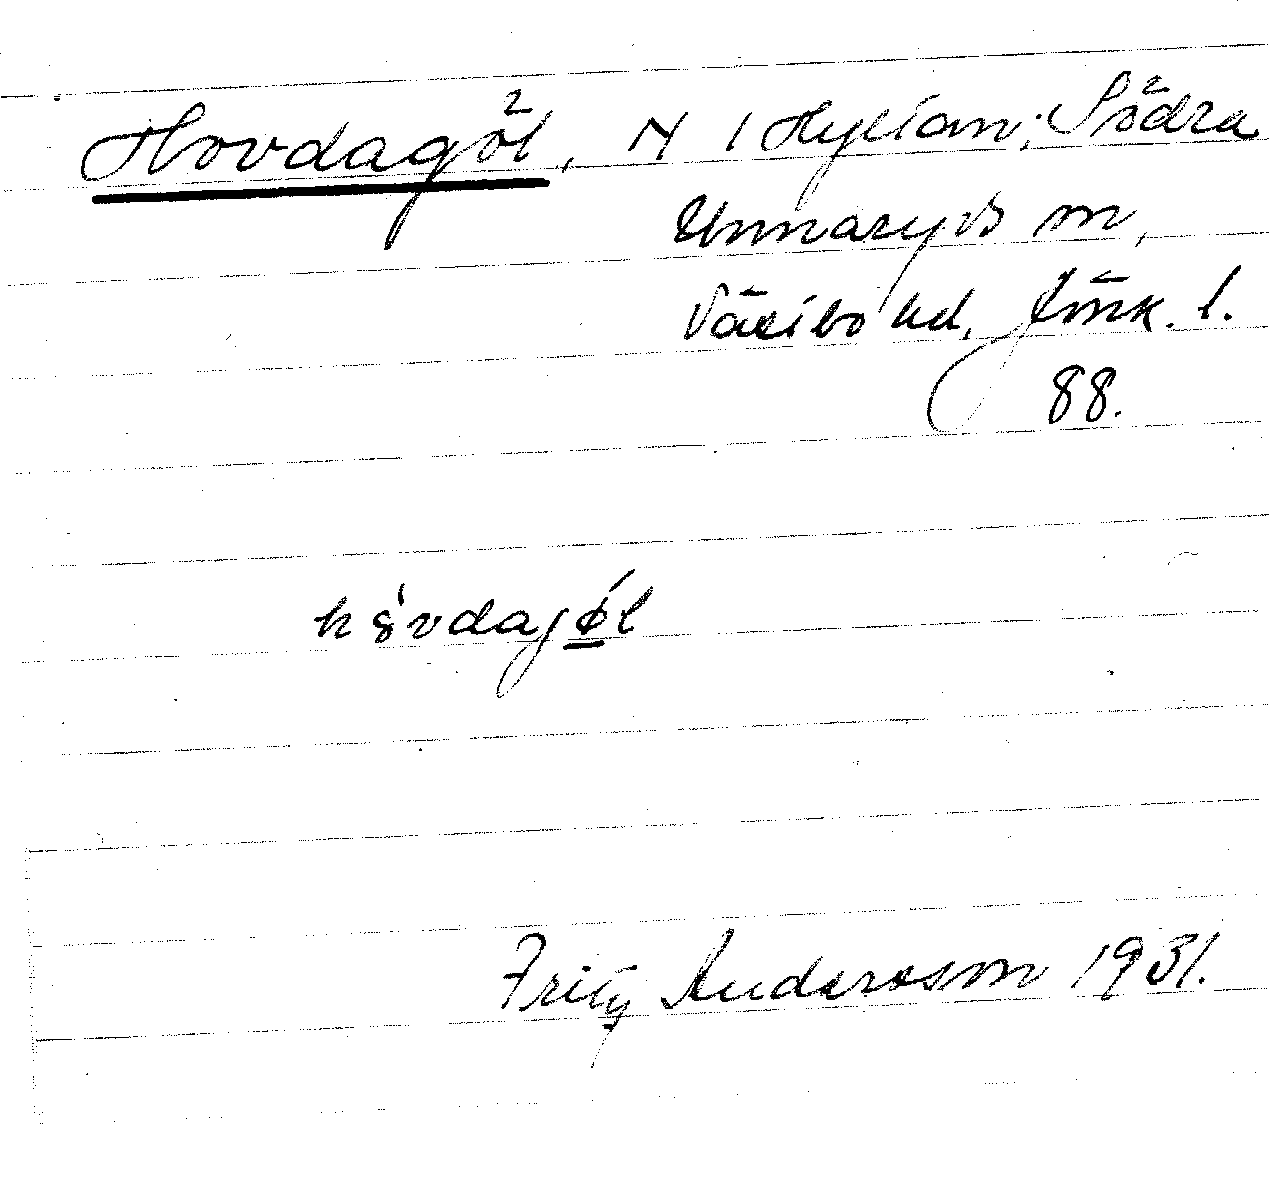 Hovdagöl, N i Hyltan; Södra
Unnaryds sn,
Västbo hd, Jönk. l.
88.
hóvdajøl
Fritz Andersson 1931.